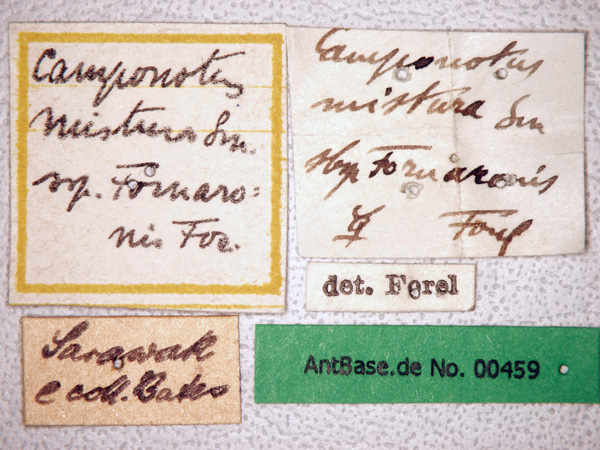 Camponotus
mistura Sm.
ssp. Fornaro=
nis For.
Camponotus
mistura Sm
sbsp Fornaronis
☿ Forel
det. Forel
Sarawak
e coll. Bates
AntBase.de No. 00459